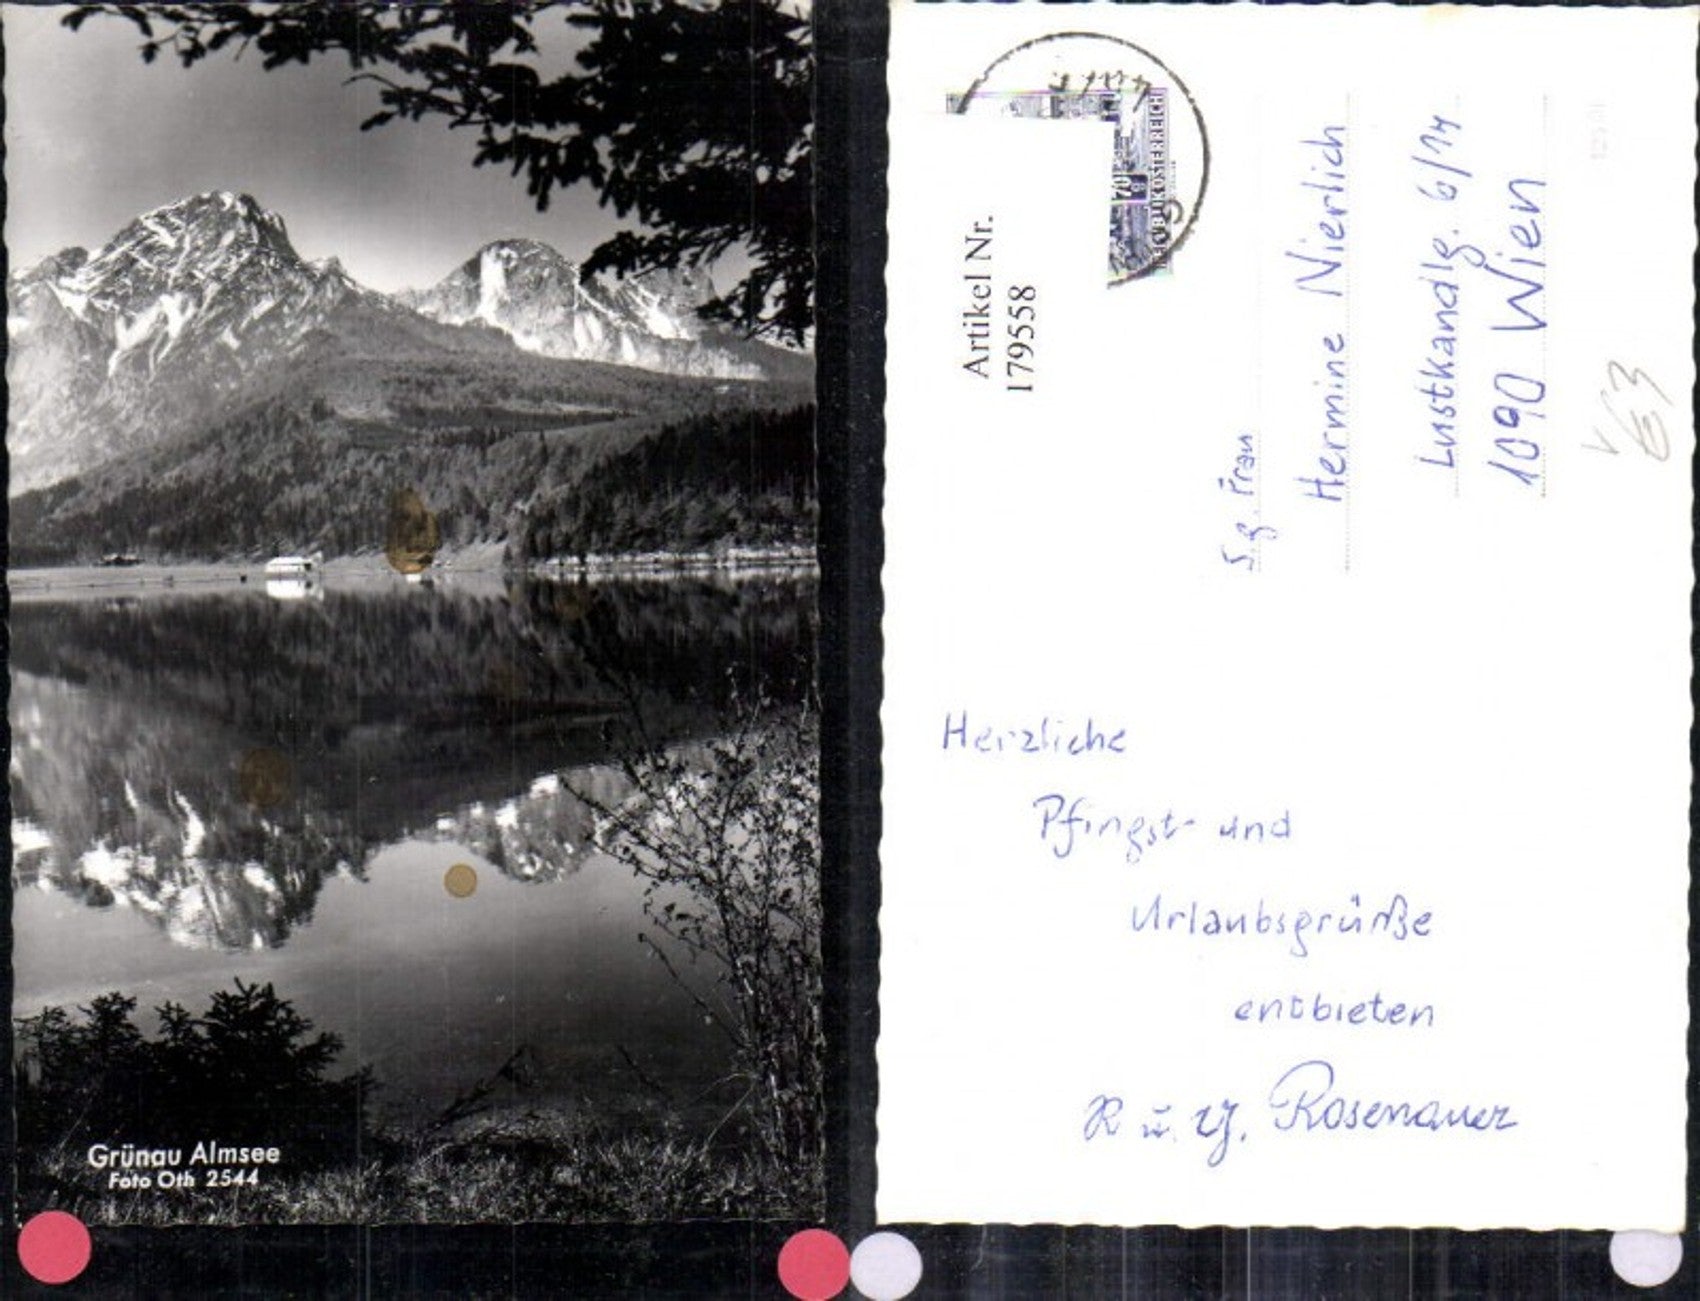 Grünau Almsee
Foto Oth 2544
Artikel Nr.
179558
70
REPUBLIK ÖSTERREICH
S. g. Frau
Hermine Nierlich
Lustkandlg. 6/14
1090 Wien
Herzliche
Pfingst- und
Urlaubsgrüße
entbieten
R u. Rosenauer